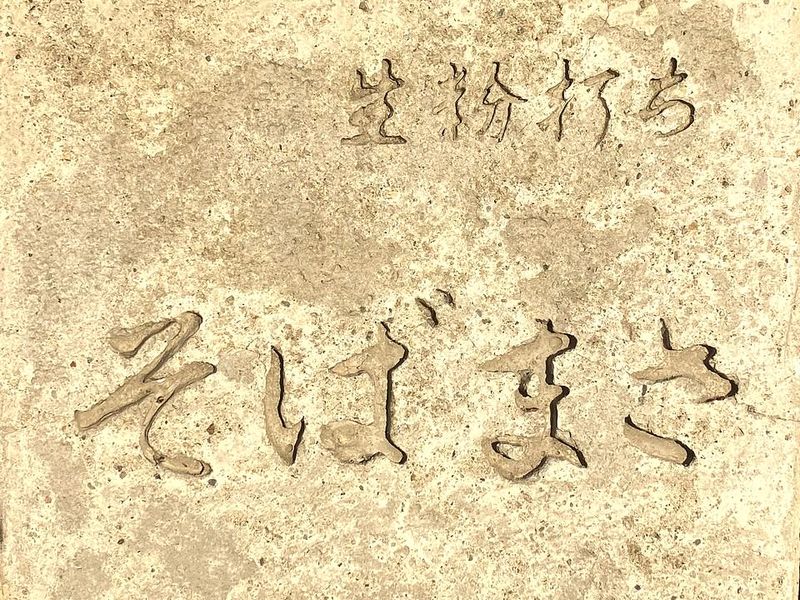 生粉打ち
そばまさ